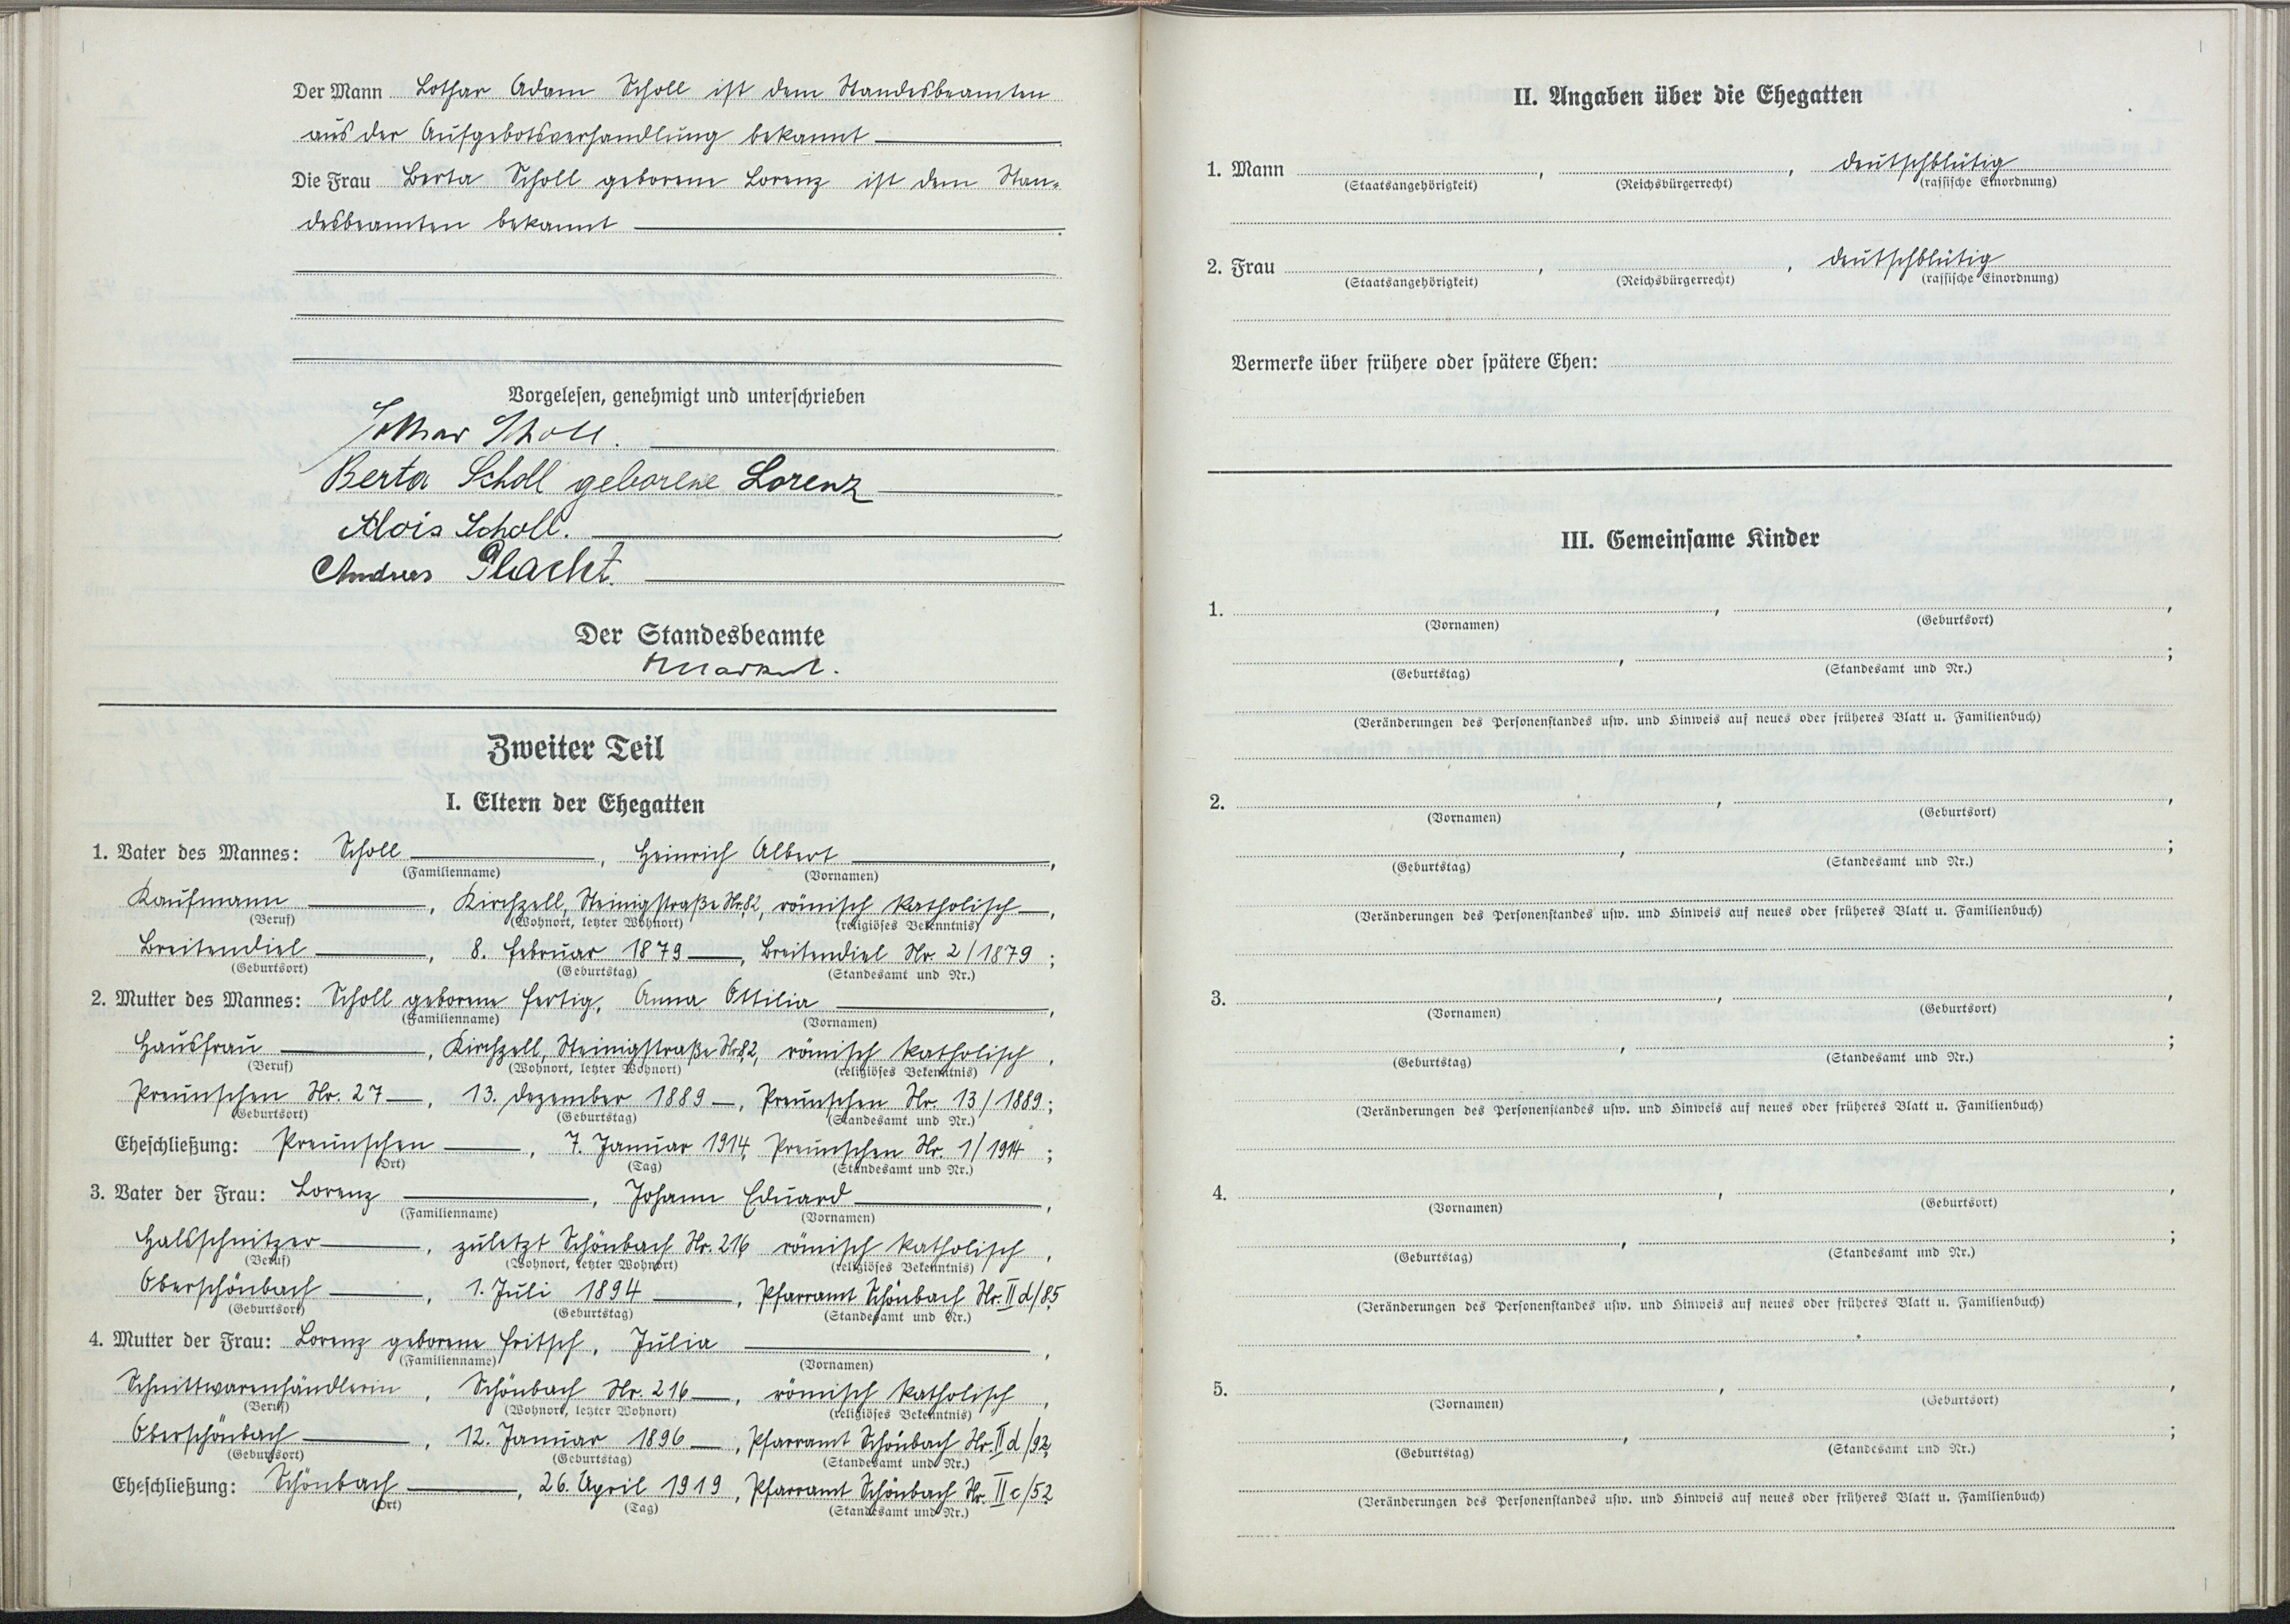 Der Mann Lothar Adam Scholl ist dem Standesbeamten
aus der Aufgebotsverhandlung bekannt
Die Frau Berta Scholl geborene Lorenz ist dem Stan-
desbeamten bekannt
Vorgelesen, genehmigt und unterschrieben
Lothar Scholl.
Berta Scholl geborene Lorenz
Alois Scholl.
Andreas Placht.
Der Standesbeamte
Zweiter Teil
I. Eltern der Ehegatten
1. Vater des Mannes: Scholl, Heinrich Albert,
(Familienname) (Vornamen)
Kaufmann, Kirchzell, Steinigstraße Nr. 82, römisch katholisch,
(Beruf) (Wohnort, letzter Wohnort) (religiöses Bekenntnis)
Breitendiel, 8. Februar 1879, Breitendiel Nr. 2/1879;
(Geburtsort) (Geburtstag) (Standesamt und Nr.)
2. Mutter des Mannes: Scholl geborene Fertig, Anna Ottilia,
(Familienname) (Vornamen)
Hausfrau, Kirchzell, Steinigstraße Nr. 82, römisch katholisch,
(Beruf) (Wohnort, letzter Wohnort) (religiöses Bekenntnis)
Preunschen Nr. 27, 13. Dezember 1889, Preunschen Nr. 13/1889;
(Geburtsort) (Geburtstag) (Standesamt und Nr.)
Eheschließung: Preunschen, 7. Januar 1914, Preunschen Nr. 1/1914;
(Ort) (Tag) (Standesamt und Nr.)
3. Vater der Frau: Lorenz, Johann Eduard,
(Familienname) (Vornamen)
Halsschnitzer, zuletzt Schönbach Nr. 216 römisch katholisch,
(Beruf) (Wohnort, letzter Wohnort) (religiöses Bekenntnis)
Oberschönbach, 1. Juli 1894, Pfarramt Schönbach Nr. II d/85
(Geburtsort) (Geburtstag) (Standesamt und Nr.)
4. Mutter der Frau: Lorenz geborene Fritsch, Julia,
(Familienname) (Vornamen)
Schnittwarenhändlerin, Schönbach Nr. 216, römisch katholisch,
(Beruf) (Wohnort, letzter Wohnort) (religiöses Bekenntnis)
Oberschönbach, 12. Januar 1896, Pfarramt Schönbach Nr. II d/92;
(Geburtsort) (Geburtstag) (Standesamt und Nr.)
Eheschließung: Schönbach, 26. April 1919, Pfarramt Schönbach Nr. II c/52
(Ort) (Tag) (Standesamt und Nr.)
II. Angaben über die Ehegatten
1. Mann , , deutschblütig
(Staatsangehörigkeit) (Reichsbürgerrecht) (rassische Einordnung)
2. Frau , , deutschblütig
(Staatsangehörigkeit) (Reichsbürgerrecht) (rassische Einordnung)
Vermerke über frühere oder spätere Ehen:
III. Gemeinsame Kinder
1. , ,
(Vornamen) (Geburtsort)
, ;
(Geburtstag) (Standesamt und Nr.)
(Veränderungen des Personenstandes usw. und Hinweis auf neues oder früheres Blatt u. Familienbuch)
2. , ,
(Vornamen) (Geburtsort)
, ;
(Geburtstag) (Standesamt und Nr.)
(Veränderungen des Personenstandes usw. und Hinweis auf neues oder früheres Blatt u. Familienbuch)
3. , ,
(Vornamen) (Geburtsort)
, ;
(Geburtstag) (Standesamt und Nr.)
(Veränderungen des Personenstandes usw. und Hinweis auf neues oder früheres Blatt u. Familienbuch)
4. , ,
(Vornamen) (Geburtsort)
, ;
(Geburtstag) (Standesamt und Nr.)
(Veränderungen des Personenstandes usw. und Hinweis auf neues oder früheres Blatt u. Familienbuch)
5. , ,
(Vornamen) (Geburtsort)
, ;
(Geburtstag) (Standesamt und Nr.)
(Veränderungen des Personenstandes usw. und Hinweis auf neues oder früheres Blatt u. Familienbuch)